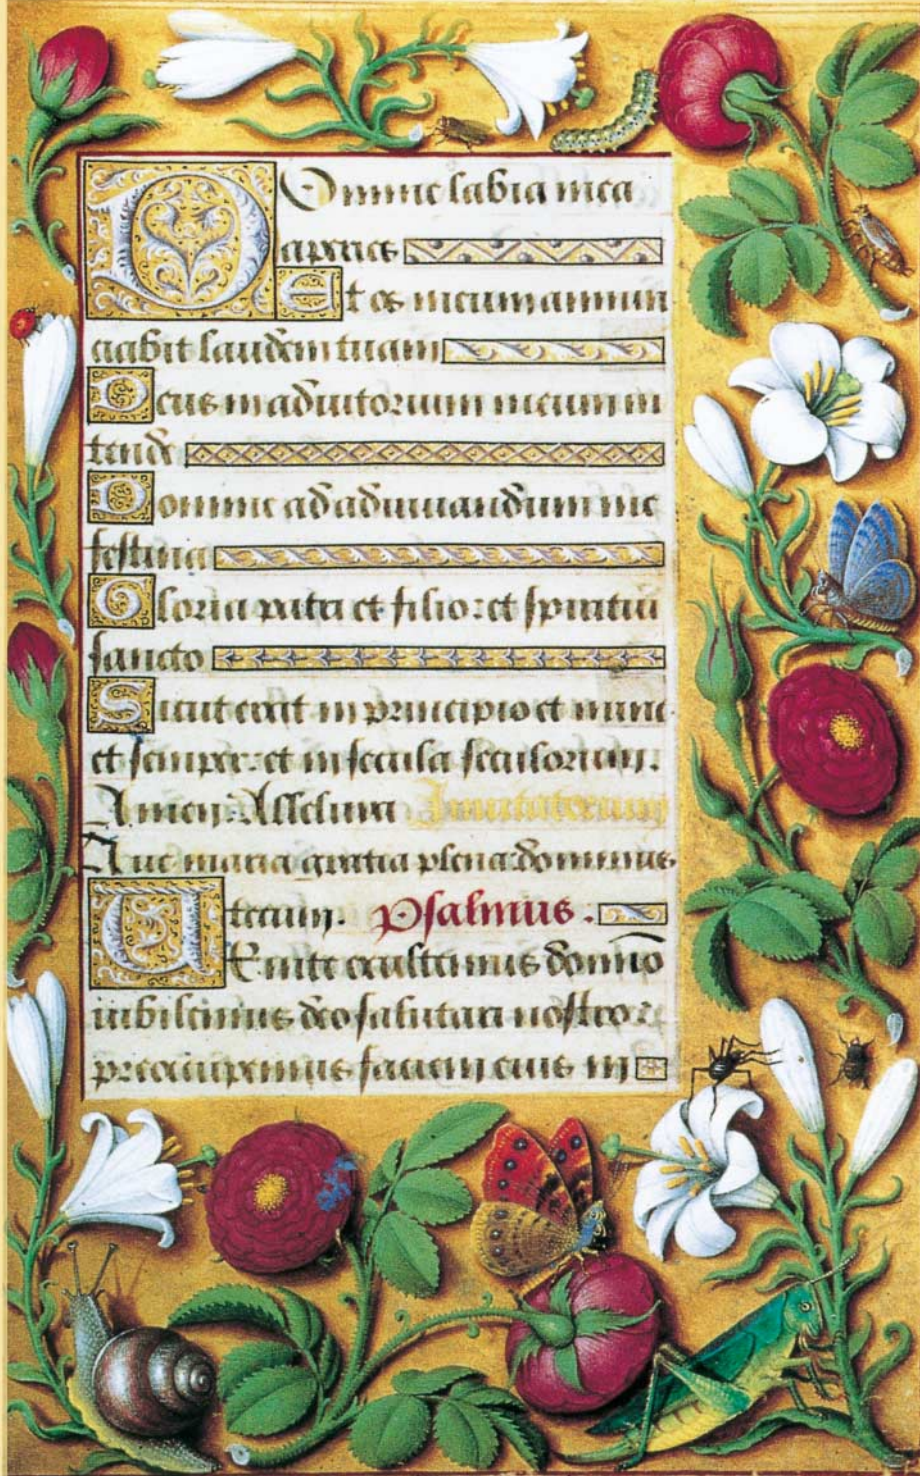 Domine labia mea
aperies
Et os meum annun
ciabit laudem tuam
Deus in adiutorium meum in
tende
Domine ad adiuuandum me
festina
Gloria patri et filio: et spiritui
sancto
Sicut erat in principio et nunc
et semper: et in secula seculorum.
Amen. Alleluia Inuitatorium
Aue maria gratia plena dominus
tecum. Psalmus.
VEnite exultemus domino
iubilemus deo salutari nostro:
preocupemus faciem eius in